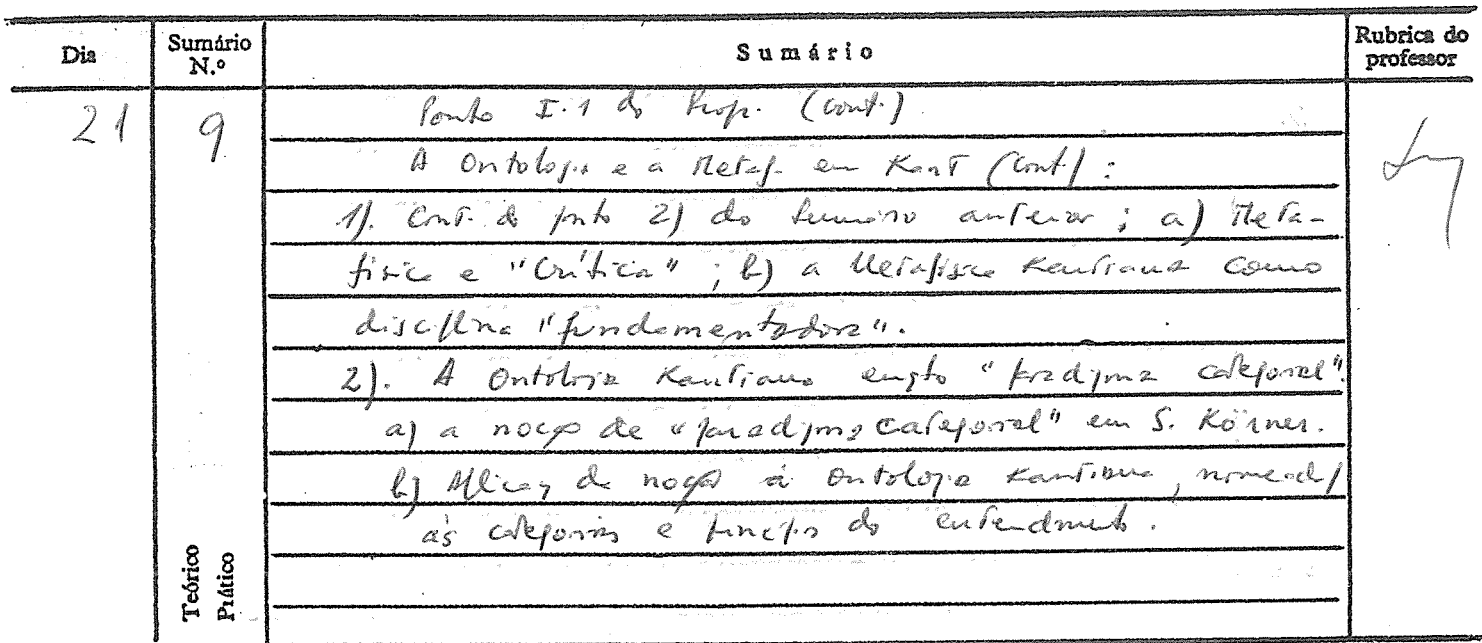 Dia
Sumário N.º
Sumário
Rubrica do professor
21
9
Ponto I.1 do Prog. (cont.)
A Ontologia e a Metaf. em Kant (Cont.) :
1). Cont. do pnto 2) do Sumário anterior ; a) Meta-
física e "Crítica" ; b) a Metafísica Kantiana como
disciplina "fundamentadora".
2). A Ontologia Kantiana enqto "paradigma categorial".
a) a noção de "paradigma categorial" em S. Körner.
b) Aplicação da noção à Ontologia Kantiana, nomead/
às categorias e princípios do entendimento.
Teórico
Prático